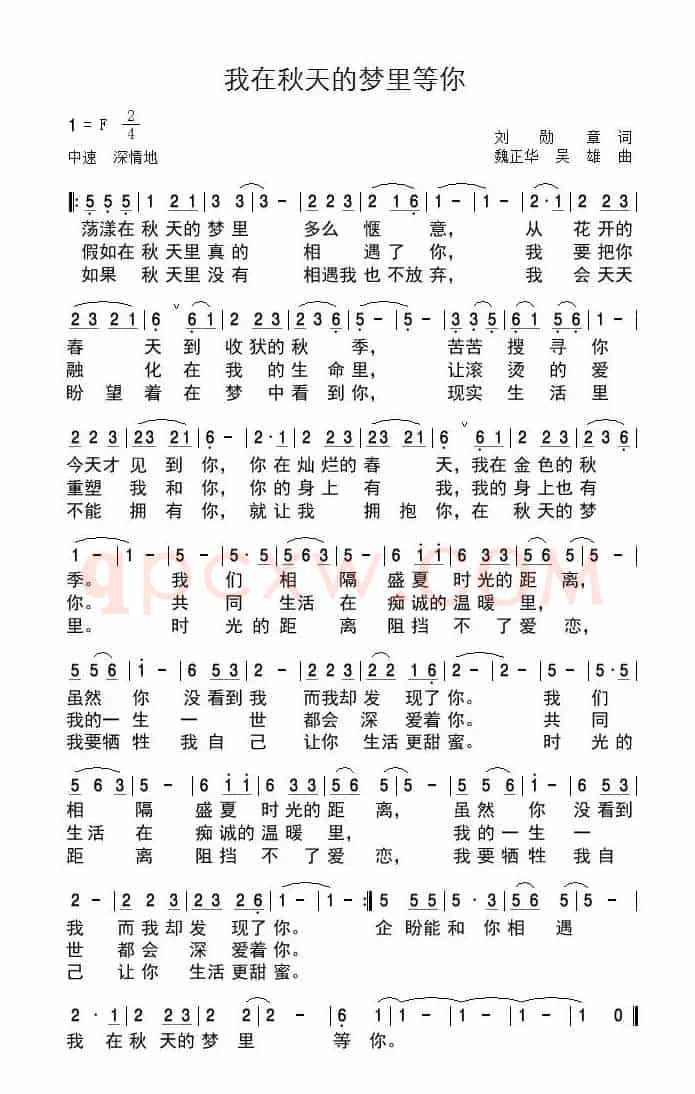 我在秋天的梦里等你
1 = F 2/4
刘 勋 章 词
中速 深情地
魏正华 吴 雄 曲
荡漾在秋天的梦里 多么 惬 意， 从 花开的
假如在秋天里真的 相 遇了 你， 我 要把你
如果 秋天里没有 相遇我也不放弃， 我 会天天
春 天到 收获的秋 季， 苦苦 搜 寻你
融 化在 我 的生命里，让滚 烫 的 爱
盼 望 着 在 梦 中看到你， 现实 生 活 里
今天才 见 到 你， 你 在灿烂的春 天，我在金色的秋
重塑 我 和 你， 你 的身上 有 我，我的身上也有
不能 拥 有 你， 就让 我 拥 抱 你，在 秋天的梦
季。 我 们 相 隔 盛夏 时光的距 离，
你。 共 同 生活 在 痴诚的温暖 里，
里。 时 光的 距 离 阻挡 不 了 爱 恋，
qpcxw.com
虽然 你 没看到我 而我却发 现了你。 我 们
我的一生 一 世 都会 深 爱着你。 共 同
我要牺牲 我自己 让你 生活更甜蜜。 时 光的
相 隔 盛夏 时光的距 离， 虽然 你 没看到
生活 在 痴诚的温 暖 里， 我的一生 一
距 离 阻挡 不 了 爱 恋， 我要牺牲 我自
我 而我却发 现了你。 企 盼能和 你相 遇
世 都会 深 爱着你。
己 让你 生活更甜蜜。
我 在 秋 天的 梦 里 等 你。